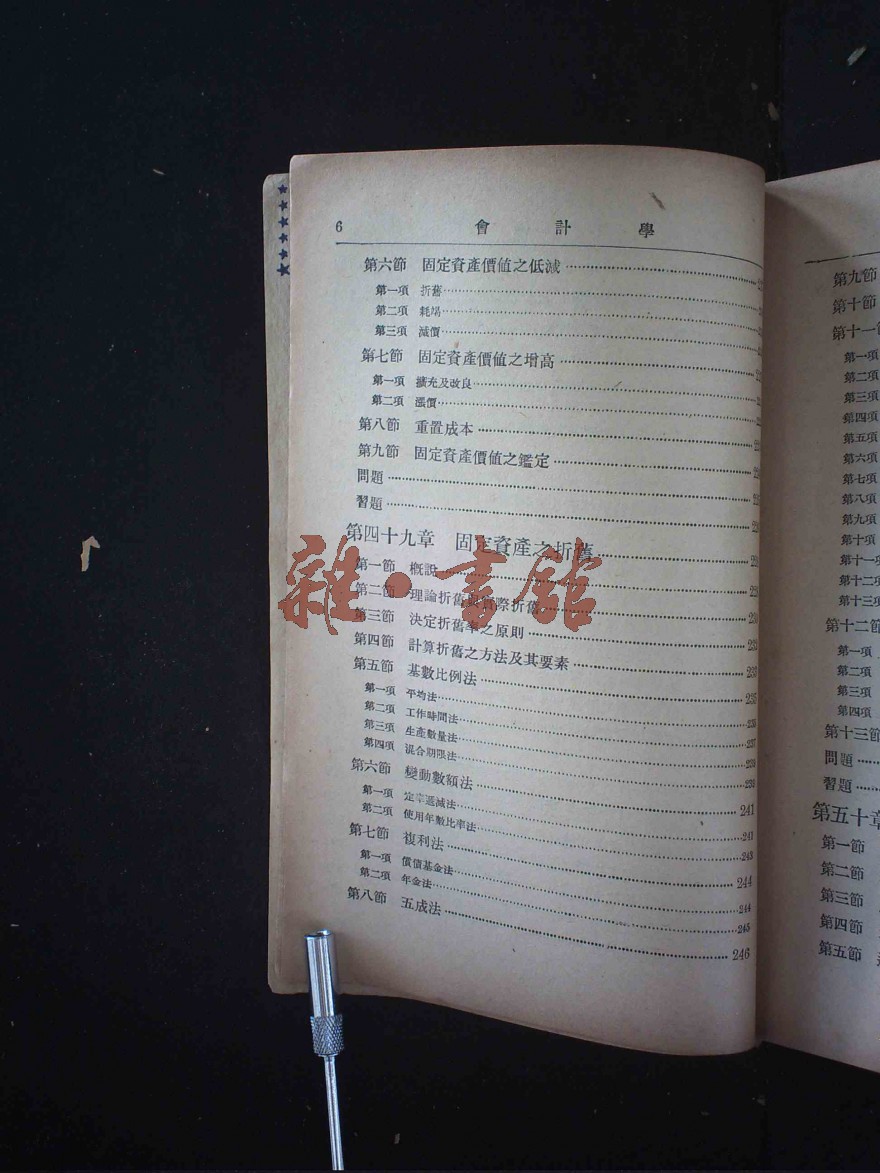 6 會計學
第六節 固定資產價值之低減
第一項 折舊
第二項 耗竭
第三項 減價
第七節 固定資產價值之增高
第一項 擴充及改良
第二項 漲價
第八節 重置成本
第九節 固定資產價值之鑑定
問題
習題
第四十九章 固定資產之折舊
第一節 概說
第二節 理論折舊與實際折舊
第三節 決定折舊率之原則
第四節 計算折舊之方法及其要素 233
第五節 基數比例法 235
第一項 平均法
第二項 工作時間法 237
第三項 生產數量法
第四項 混合期限法
第六節 變動數額法 241
第一項 定率遞減法 241
第二項 使用年數比率法 243
第七節 複利法 244
第一項 償債基金法 244
第二項 年金法 245
第八節 五成法 246
雜·書館
第九節
第十節
第十一節
第一項
第二項
第三項
第四項
第五項
第六項
第七項
第八項
第九項
第十項
第十一項
第十二項
第十三項
第十二節
第一項
第二項
第三項
第四項
第十三節
問題
習題
第五十章
第一節
第二節
第三節
第四節
第五節